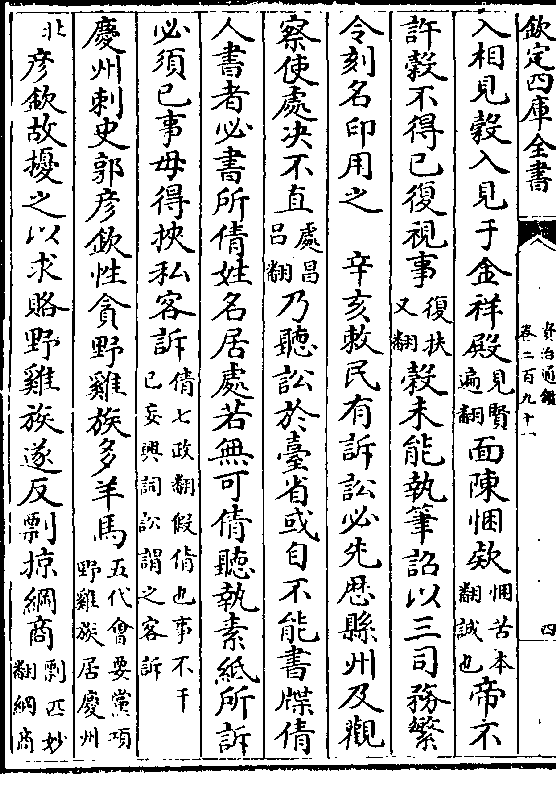 欽定四庫全書
資治通鑑
卷二百九十一
四
入相見穀入見于金祥殿見賢遍翻面陳悃欵悃苦本翻誠也帝不
許穀不得已復視事復扶又翻穀未能執筆詔以三司務繁
令刻名印用之　辛亥敕民有訴訟必先歴縣州及觀
察使處决不直處昌呂翻乃聽訟於臺省或自不能書牒倩
人書者必書所倩姓名居處若無可倩聽執素紙所訴
必須已事毋得挾私客訴倩七政翻假倩也事不干已妄興詞訟謂之客訴
慶州刺史郭彦欽性貪野雞族多羊馬五代會要黨項野雞族居慶州
北彦欽故擾之以求賂野雞族遂反剽掠綱商剽匹妙翻綱商